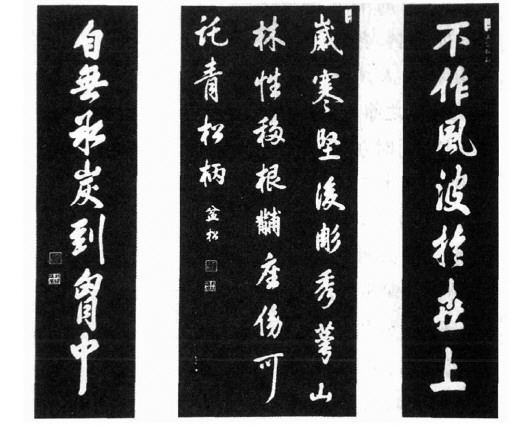 不作風波於世上
歲寒堅後彫秀萼山
林性移根黼座傍可
託青松柄 盆松
自無氷炭到胷中